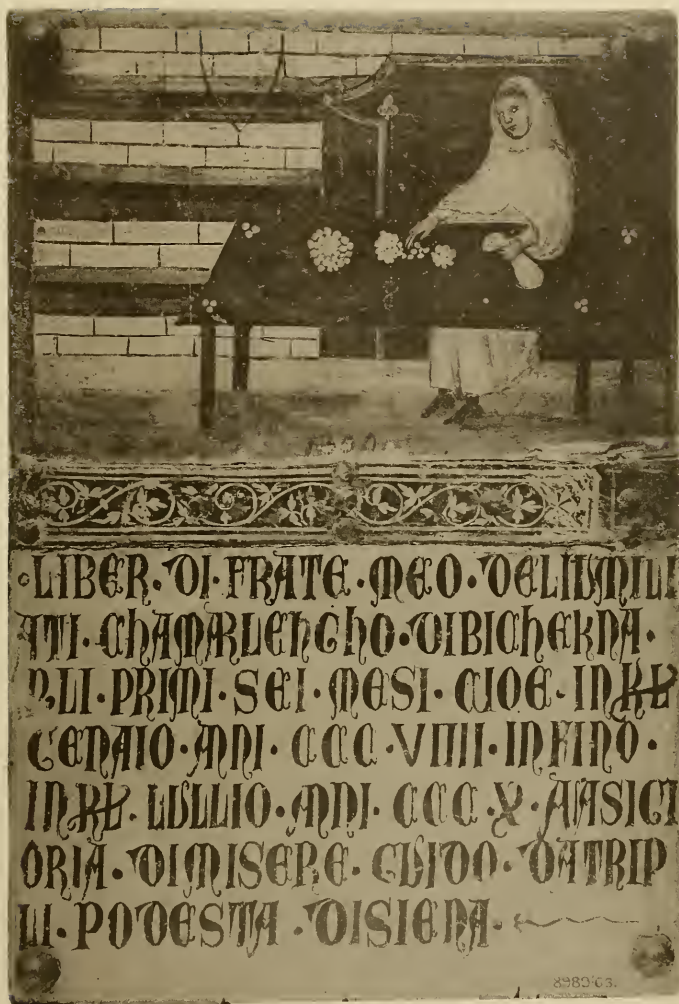 ·LIBER·DI·FRATE·MEO·DELIUMILI
ATI·CHAMARLENGHO·DIBICHERNA·
LI·PRIMI·SEI·MESI·CIOE·IN KL
GENAIO·ANNI·CCC·VIIII·INFINO·
IN KL·LULLIO·ANNI·CCC·X·A ASIGI
ORIA·DIMISERE·GUIDO·DATRIP
LI·PODESTA·DISIENA·
8989·03.